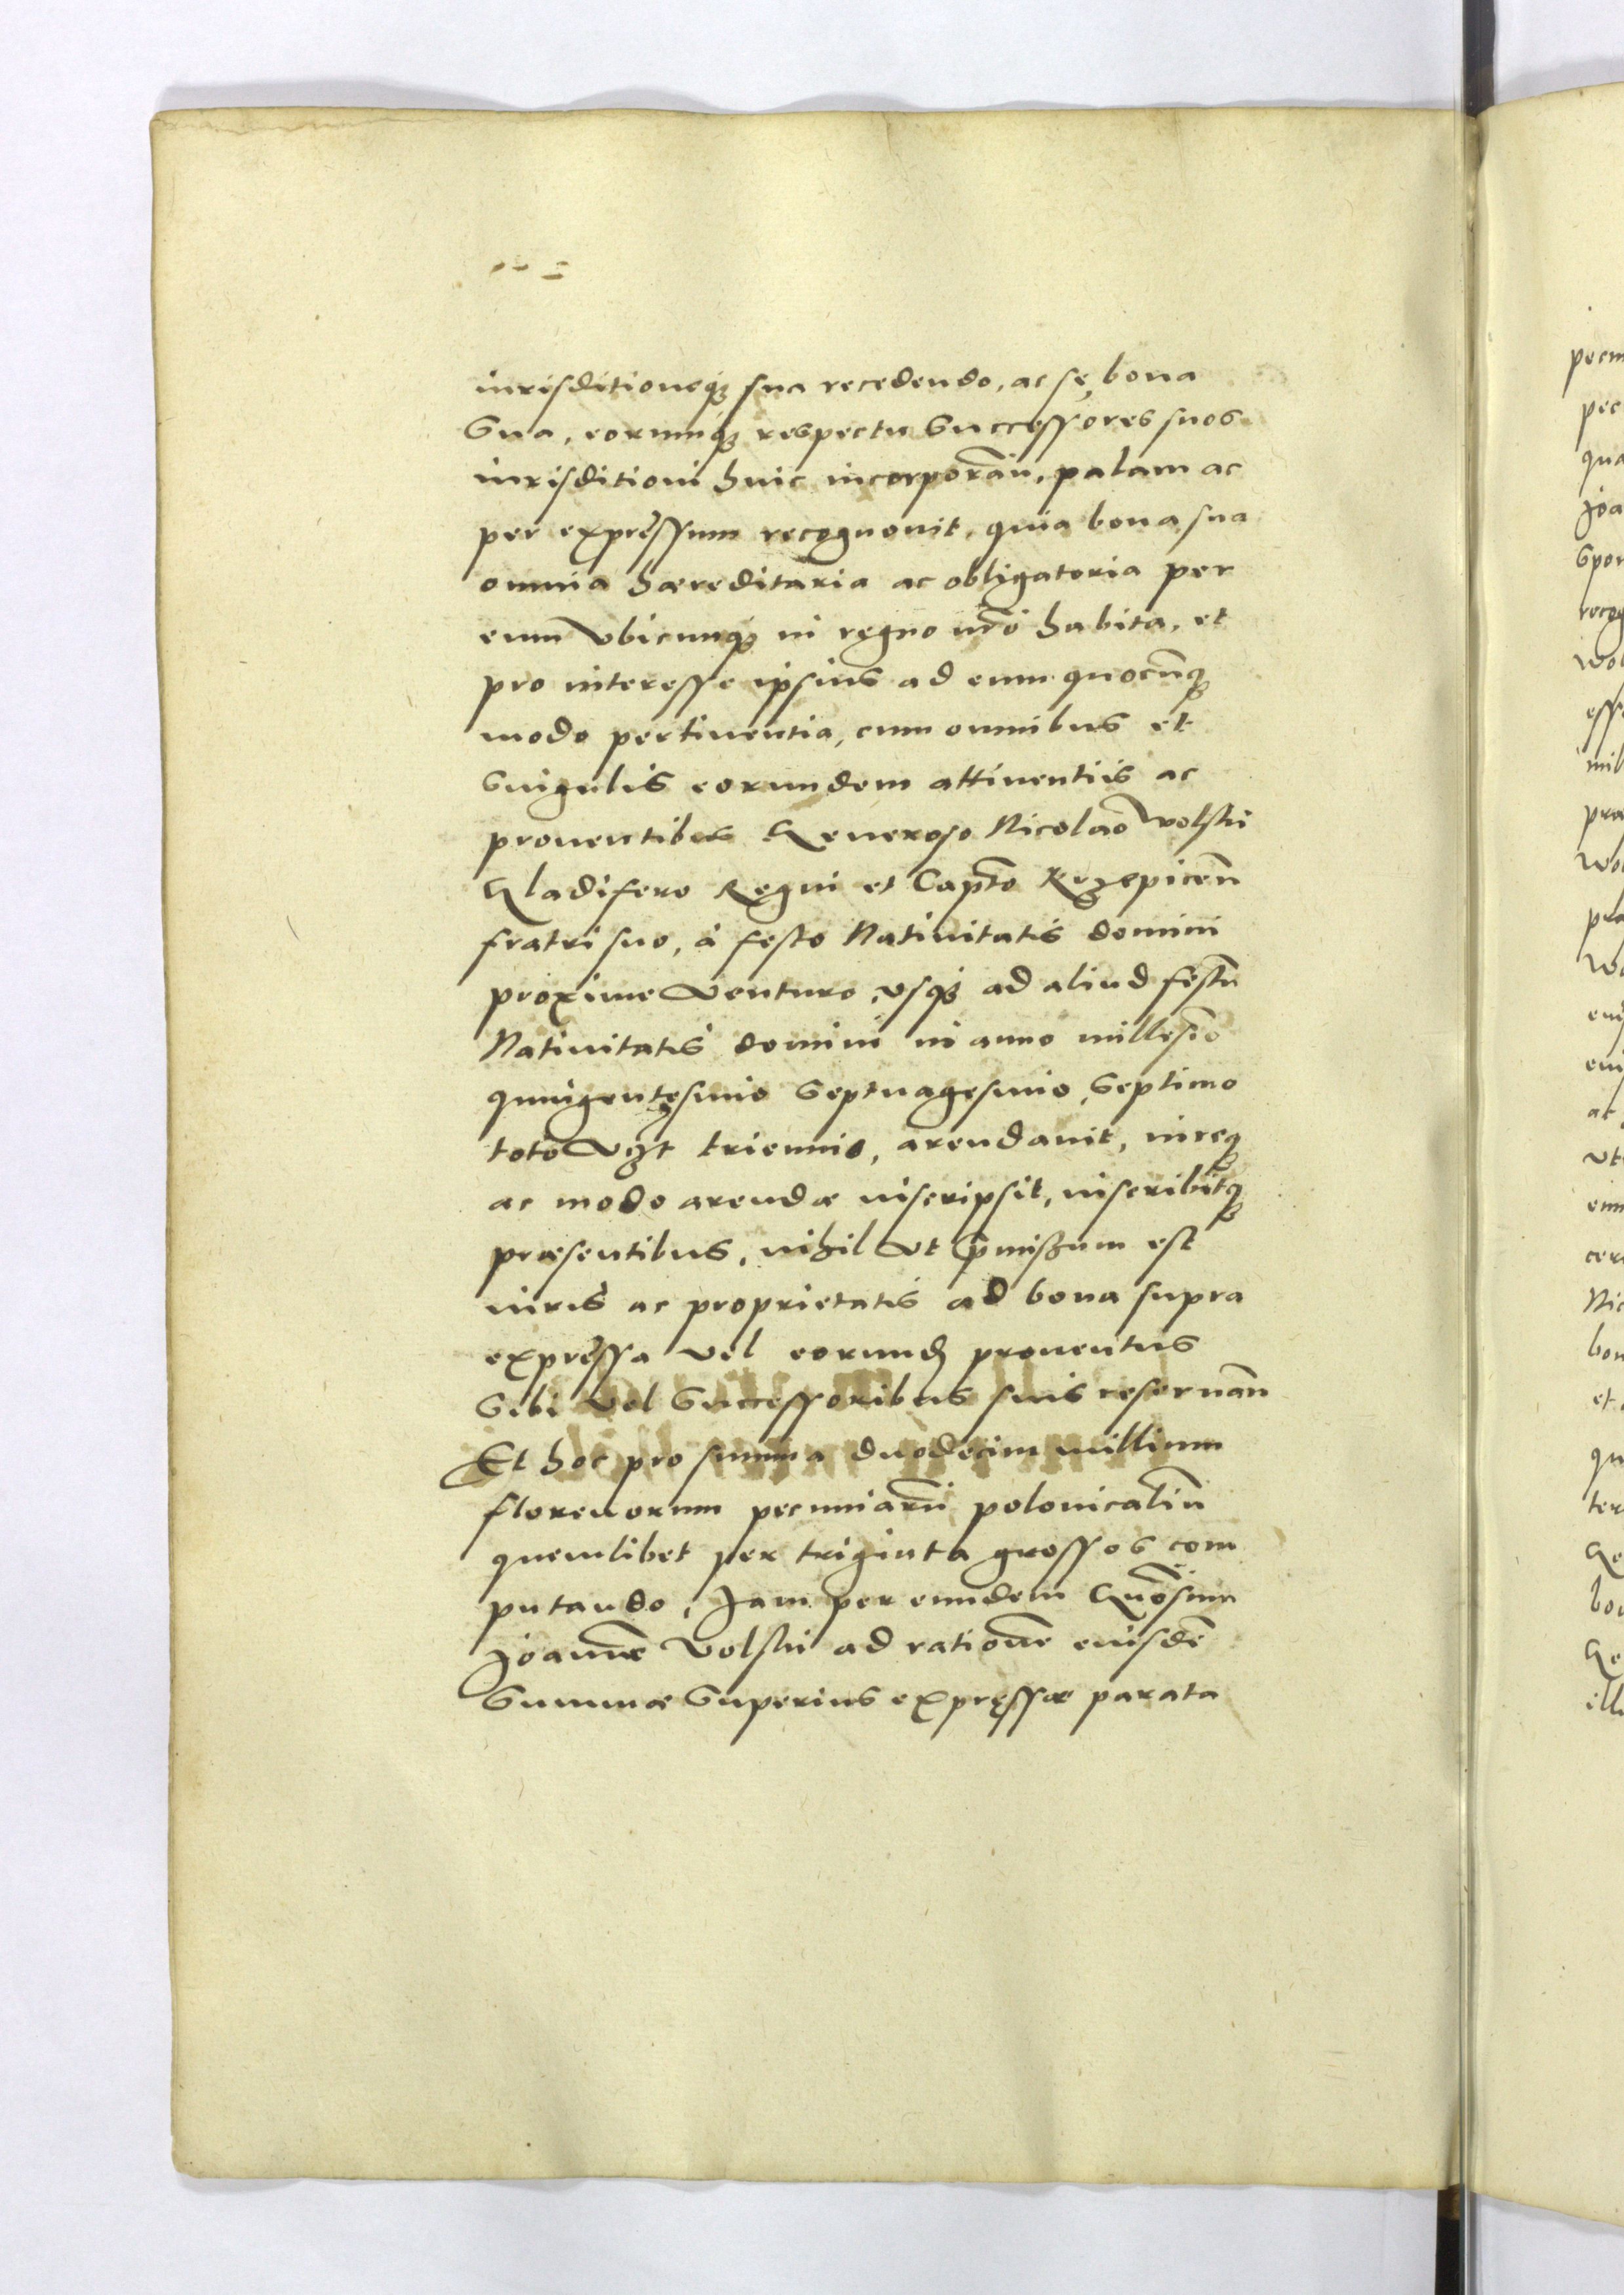 iurisditioneq₃ sua recedendo, ac sę, bona
Sua, eorumq₃ respectu Successores suos
iurisditioni huic incorporān, palam ac
per expressum recognouit, quia bona sua
omnia hæreditaria ac obligatoria per
eum vbicunq₃ in regno nrō habita, et
pro interesse ipsius ad eum quocūnq₃
modo pertinentia, cum omnibus et
Singulis eorundem attinentiis ac
prouentibus Generoso Nicolao Wolski
Gladifero Regni et Capto Krzepicēn
fratri suo, à festo Natiuitatis domini
proxime venturo, vsq₃ ad aliud festū
Natiuitatis domini in anno millesīo
quingentęsimo Septuagesimo Septimo
toto vz͞t triennio, arendauit, iureq₃
ac modo arendæ inscripsit, inscribitq₃
præsentibus, nihil vt p̄missum est
iuris ac proprietatis ad bona supra
expressa vel eorund₃ prouentus
Sibi vel Successoribus suis reseruān
Et hoc pro summa duodecim millium
florenorum pecuniarū polonicaliū
quemlibet per triginta grossos com
putando, Jam per eundem Gnōsum
Joannē Volski ad rationē eiusdē
Summæ Superius expręssæ parata